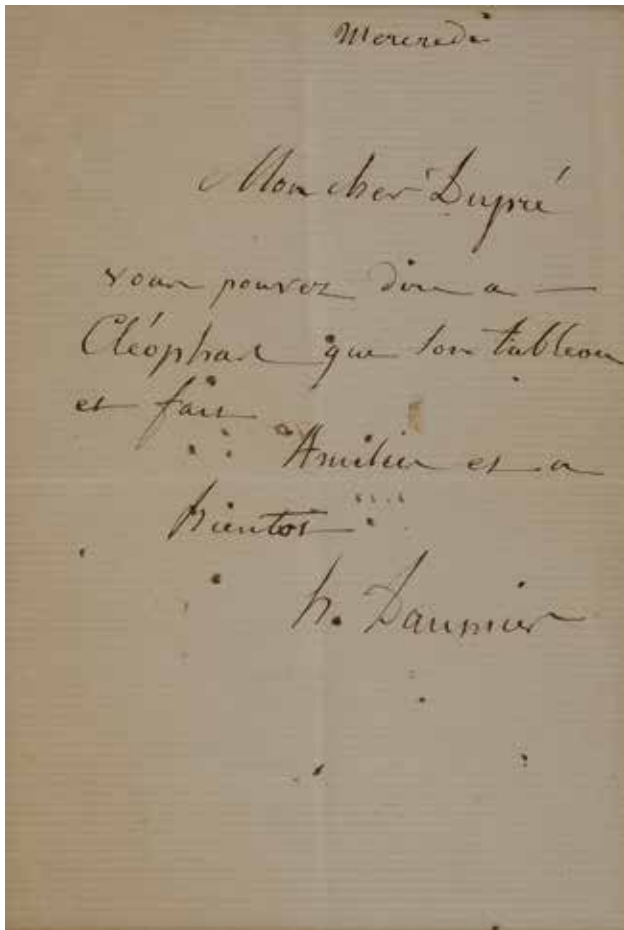 Mercredi
Mon cher Dupré
vous pouvez dire a —
Cléophas que son tableau
est fait
Amitiés et a
bientot
h. Daumier